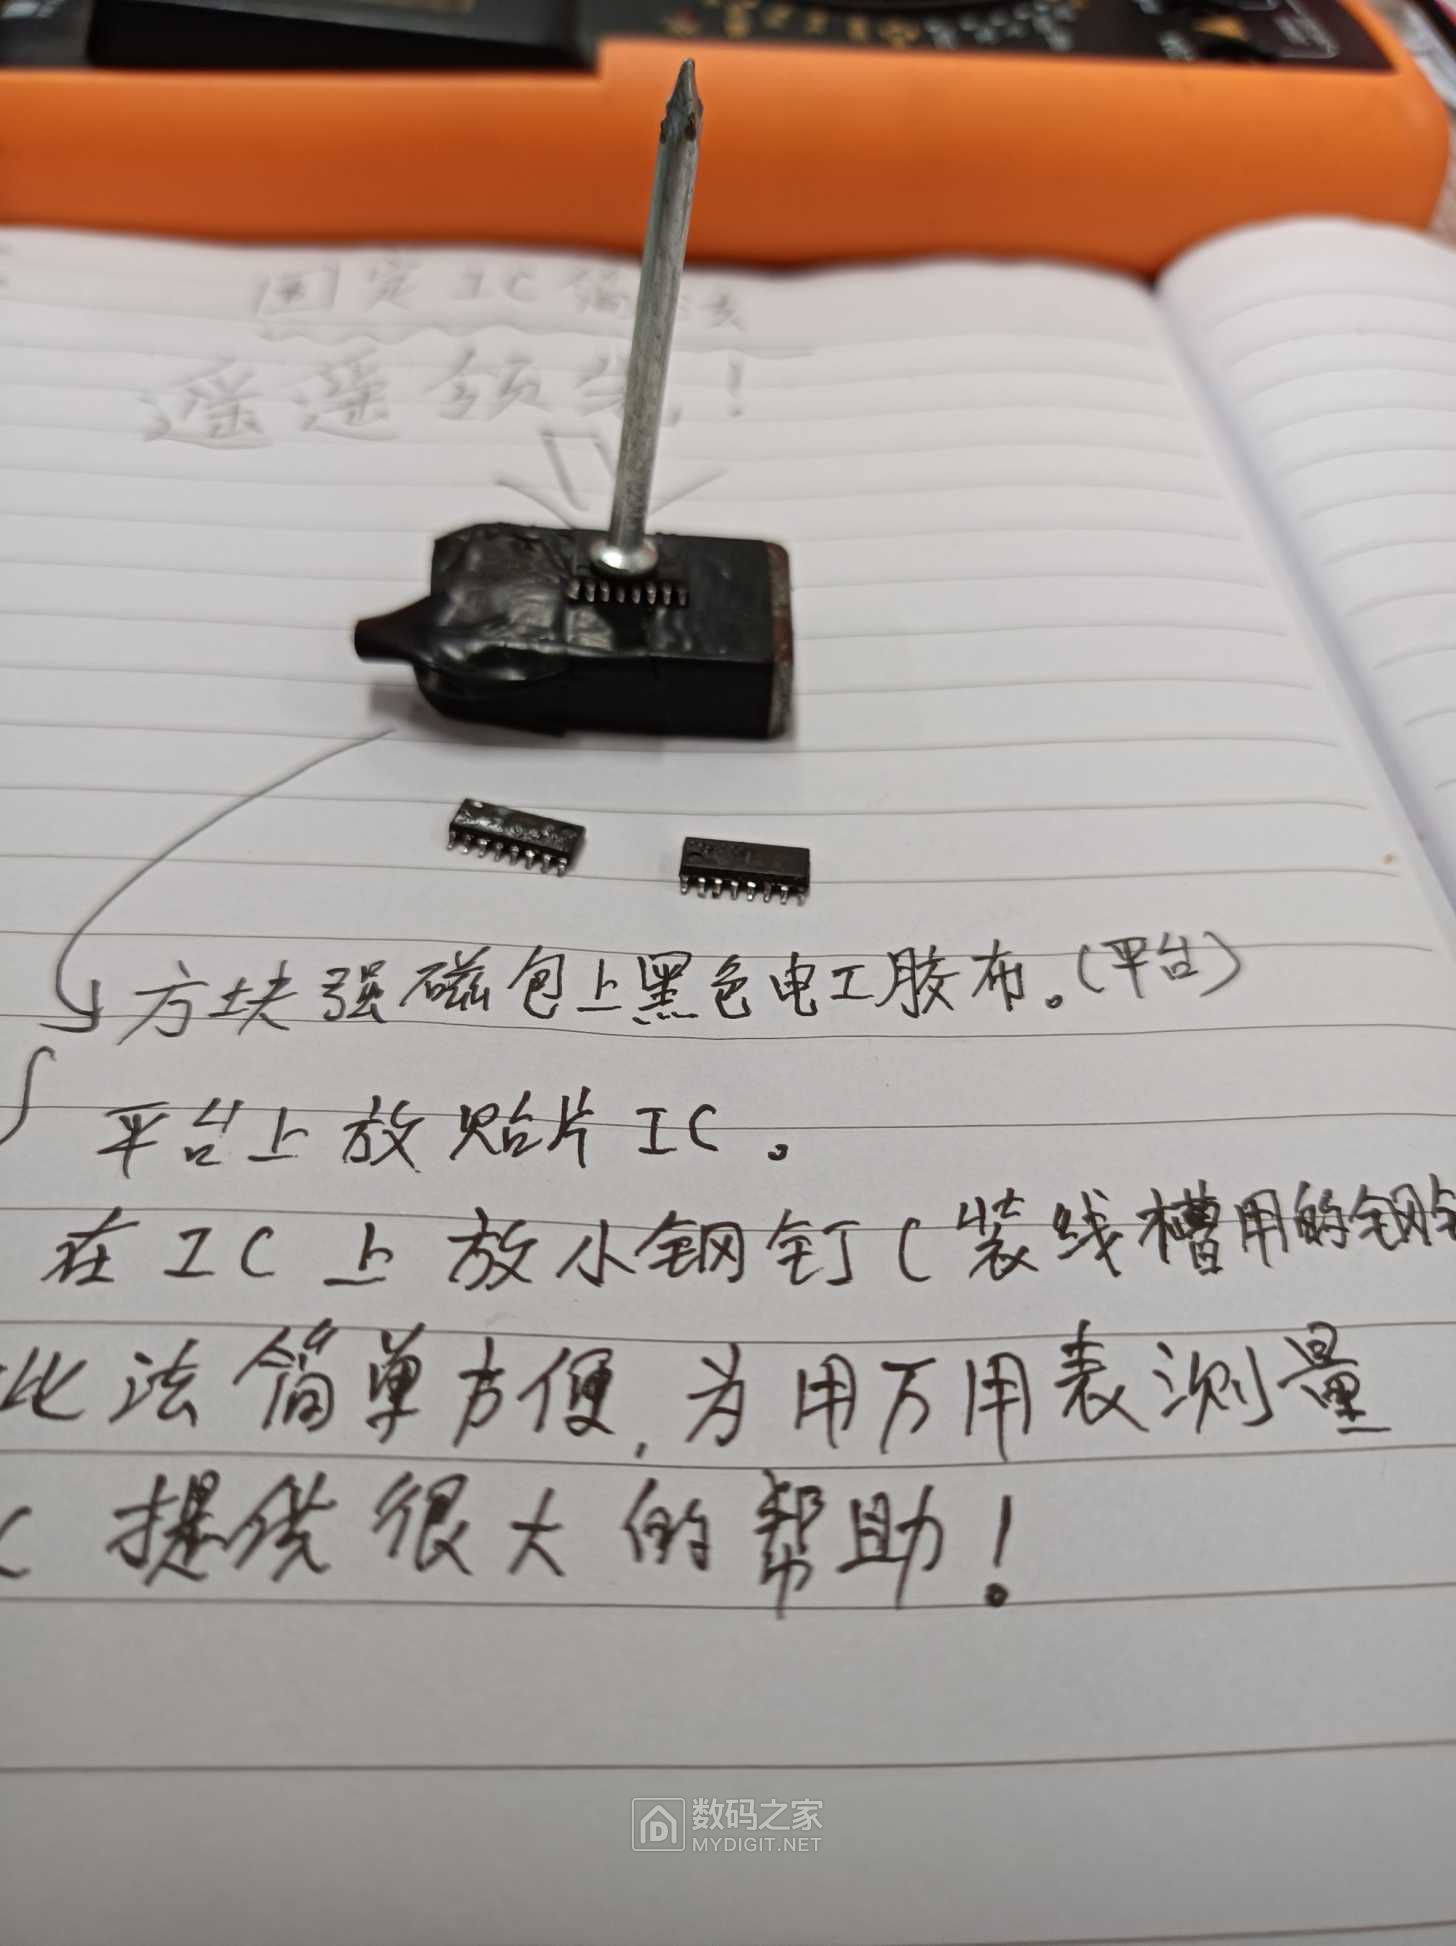 固定IC
遥遥领先!
方块强磁包上黑色电工胶布。(平台)
平台上放贴片IC。
在IC上放小钢钉(装线槽用的钢
此法简单方便,为用万用表测量
提供很大的帮助!
数码之家
MYDIGIT.NET